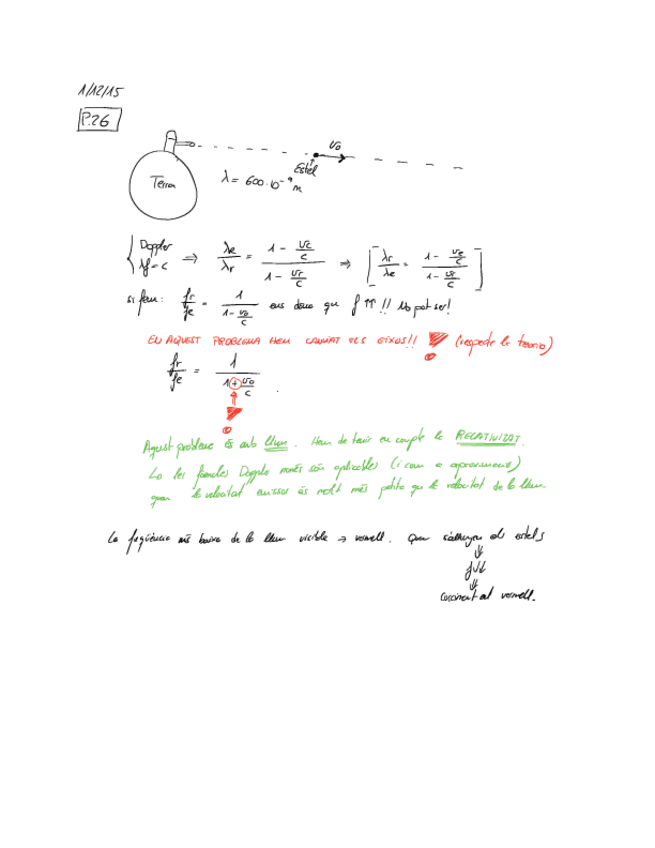 1/12/15
P.26
v₀
Estel
Terra
λ = 600·10⁻⁹ m
{ Doppler λf = c ⇒ λe/λr = (1 - ve/c)/(1 - vr/c) ⇒ [ λr/λe = (1 - ve/c)/(1 - vr/c) ]
si fem: fr/fe = 1/(1 - v₀/c) ens dona que f↑↑!! No pot ser!
EN AQUEST PROBLEMA HEM CANVIAT ELS EIXOS!! (respecte la teoria)
fr/fe = 1/(1 + v₀/c)
Aquest problema és amb llum. Hem de tenir en compte la RELATIVITAT.
Lo les fórmules Doppler només són aplicables (i com a aproximació)
quan la velocitat emissor és molt més petita que la velocitat de la llum.
La freqüència més baixa de la llum visible → vermell. Quan s'allunyen els estels
⇓
f↓↓
⇓
corriment al vermell.